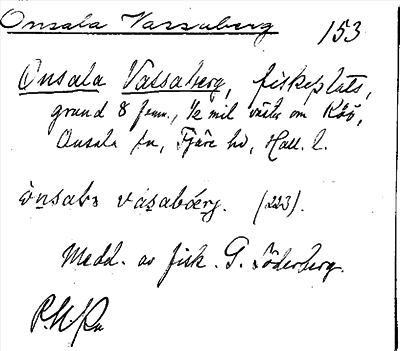 Onsala Vassaberg 153
Onsala Vassaberg, fiskeplats,
grund 8 famn., 1/2 mil väster om Röö,
Onsala sn, Fjäre hd, Hall. l.
ònsala vásabǽrg. (223).
Medd. av fisk. G. Söderberg.